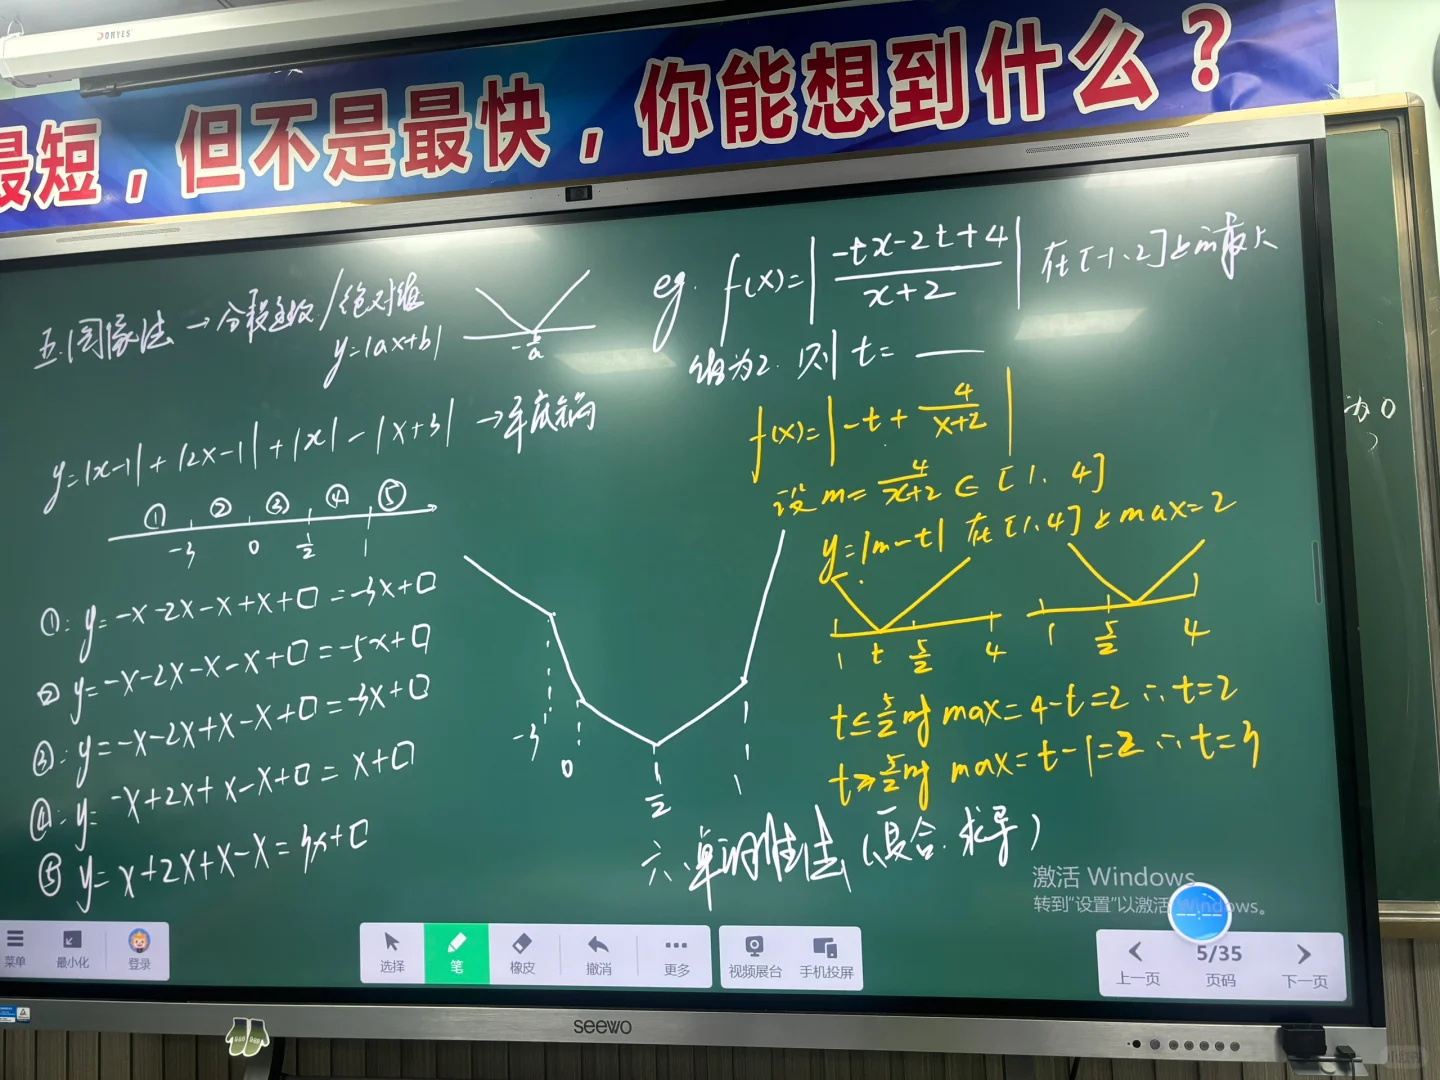 DONYES
最短，但不是最快，你能想到什么？
五.图象法 → 分段函数/绝对值
y=|ax+b|
y=|x-1|+|2x-1|+|x|-|x+3| → 平底锅
① ② ③ ④ ⑤
-3 0 1/2 1
①: y=-x-2x-x+x+□=-3x+□
② y=-x-2x-x-x+□=-5x+□
③: y=-x-2x+x-x+□=-3x+□
④: y=-x+2x+x-x+□=x+□
⑤ y=x+2x+x-x=3x+□
-3 0 1/2 1
eg. f(x)=|(-tx-2t+4)/(x+2)| 在[-1,2]上的最大
值为2. 则 t= ___
f(x)=|-t+4/(x+2)|
设 m=4/(x+2)∈[1, 4]
y=|m-t| 在[1,4]上max=2
1 t 5/2 4
1 5/2 4
t≤5/2时 max=4-t=2 ∴t=2
t≥5/2时 max=t-1=2 ∴t=3
六.单调性法(复合.求导)
为0
激活 Windows
转到"设置"以激活 Windows。
菜单 最小化 登录 选择 笔 橡皮 撤消 更多 视频展台 手机投屏
上一页 5/35 页码 下一页
seewo